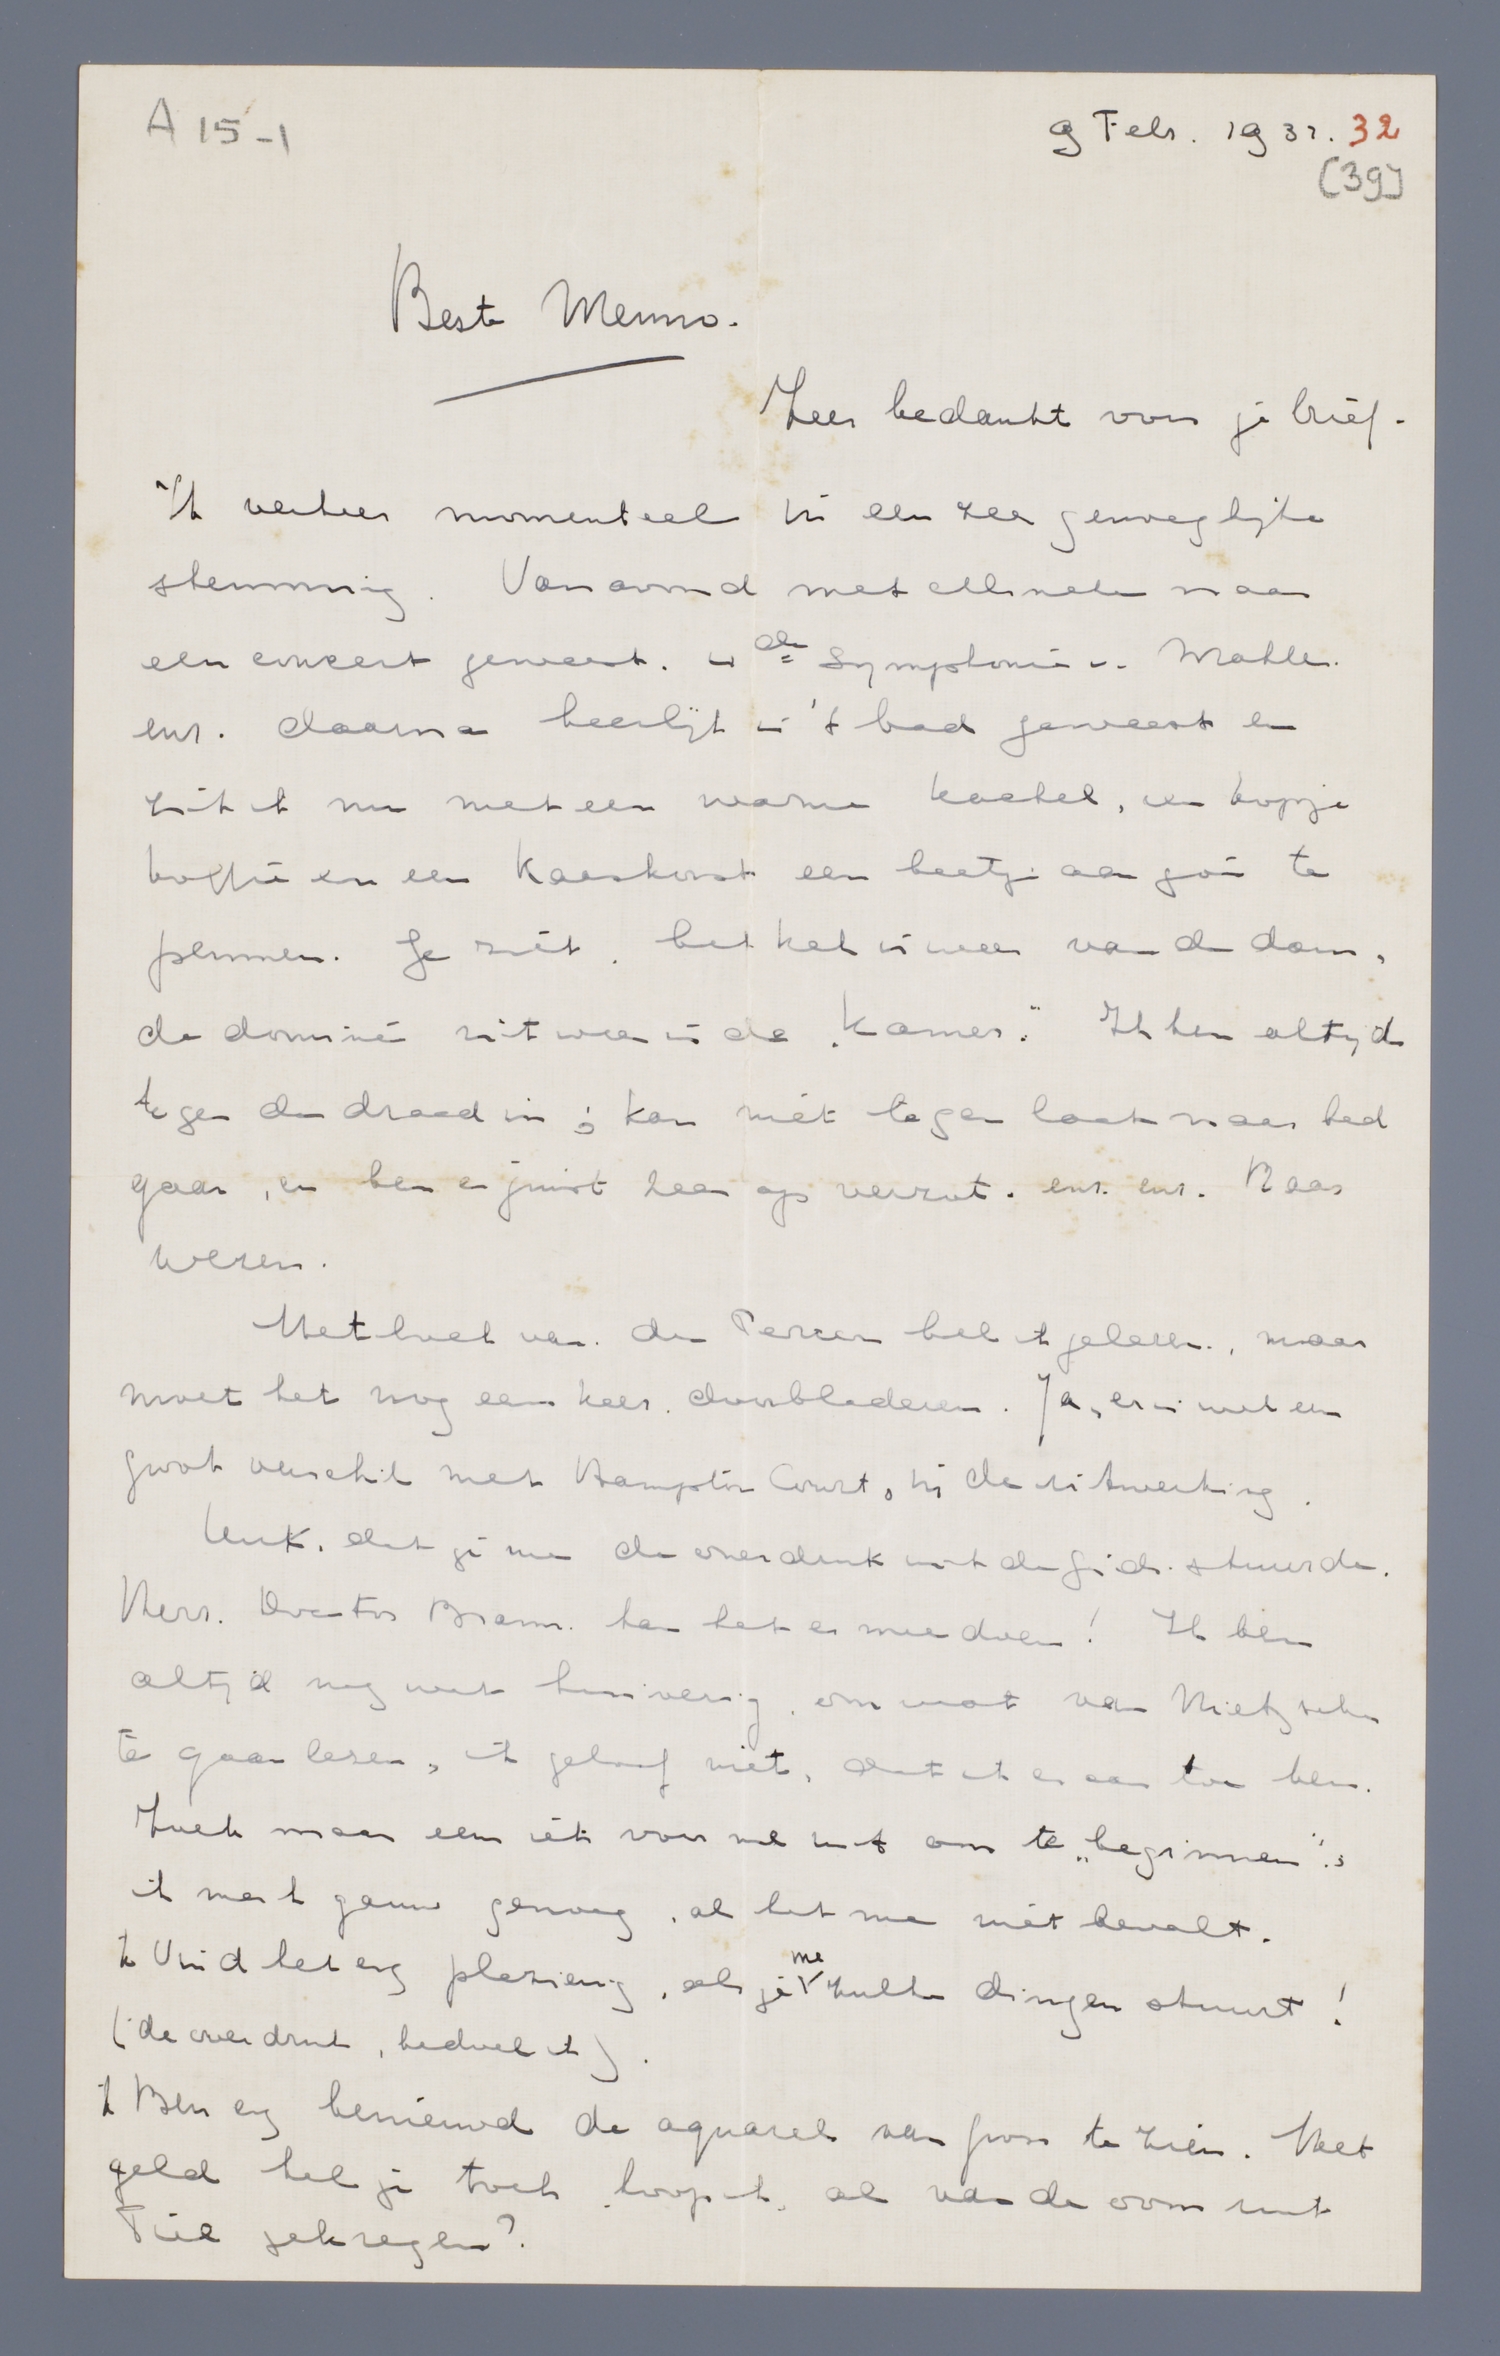 A 15-1
9 Febr. 1931. 32
[39]
Beste Menno.
Zeer bedankt voor je brief.
'k verkeer momenteel in een zeer genoeglijke
stemming. Vanavond met
een concert geweest. 4 de Symphonie v. Mahler.
enz. daarna heerlijk in 't bad geweest en
zit ik nu met een warme kachel, een kopje
koffie en een kaaskorst een beetje aan jou te
pennen. Je ziet, het hek is weer van de dam,
de dominé zit weer in de „kamer." Ik ben altijd
tegen de draad in; kan niet tegen laat naar bed
gaan, en ben er juist zeer op verzot. enz. enz. Raar
wezen.
Het boek van de Perzen heb ik gelezen, maar
moet het nog een keer doorbladeren. Ja, er is wel een
groot verschil met Hampton Court, in de uitwerking.
Leuk, dat je me de overdruk uit de Gids stuurde.
Herr Doctor Braun kan het er mee doen! Ik ben
altijd nog wat huiverig, om wat van Nietzsche
te gaan lezen, ik geloof niet, dat ik er aan toe ben.
Zoek maar eens iets voor me uit om te „beginnen";
ik merk gauw genoeg, als het me niet bevalt.
'k Vind het erg plezierig, als je me zulke dingen stuurt!
(de overdruk, bedoel ik).
'k Ben erg benieuwd de aquarel van je te zien. Het
geld heb je toch, hoop ik, al van de oom uit
Tiel gekregen?